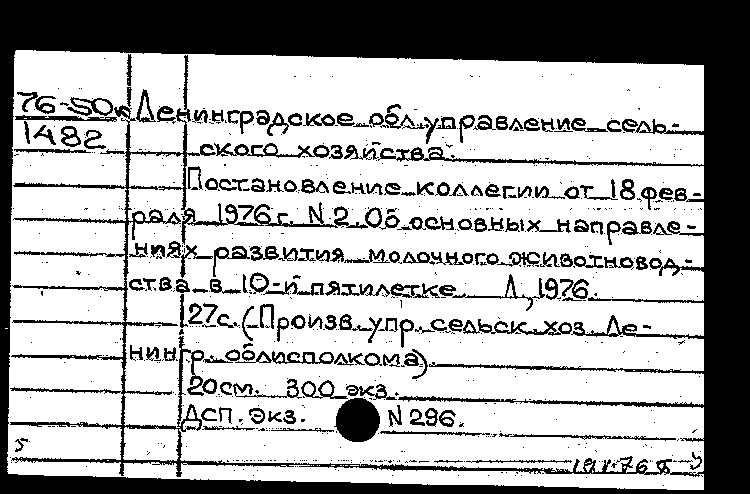 76-50к Ленинградское обл. управление сель-
1482 ского хозяйства.
Постановление коллегии от 18 фев-
раля 1976 г. N 2. Об основных направле-
ниях развития молочного животновод-
ства в 10-й пятилетке. Л., 1976.
27с. (Произв. упр. сельск. хоз. Ле-
нингр. облисполкома).
20см. 300 экз.
ДСП. Экз. N 296.
5